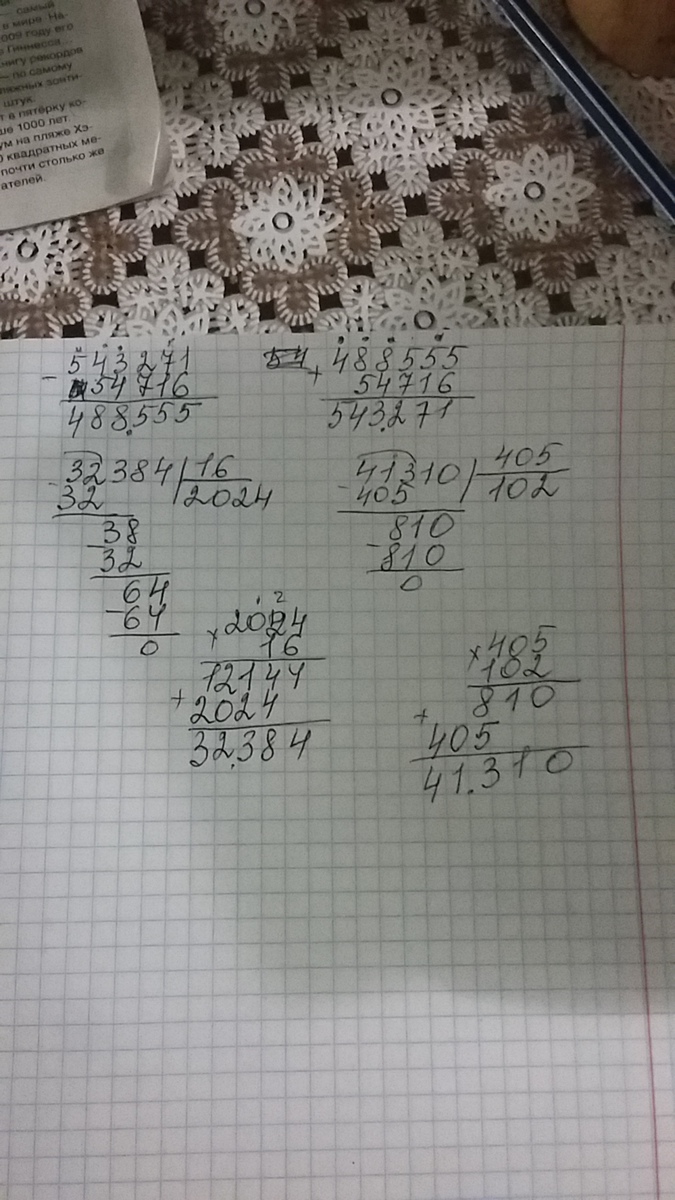 — самый
в мире. На-
009 году его
Гиннесса...
нигу рекордов
— по самому
ляжных зонти-
штук.
т в пятёрку ко-
ше 1000 лет.
ум на пляже Хэ-
0 квадратных ме-
почти столько же
ателей.
543271
- 54716
488.555
54 488555
+ 54716
543.271
32384 16
- 32 2024
38
- 32
64
- 64
0
41310 405
- 405 102
810
- 810
0
1 2
× 2024
16
12144
+ 2024
32.384
× 405
102
810
+ 405
41.310